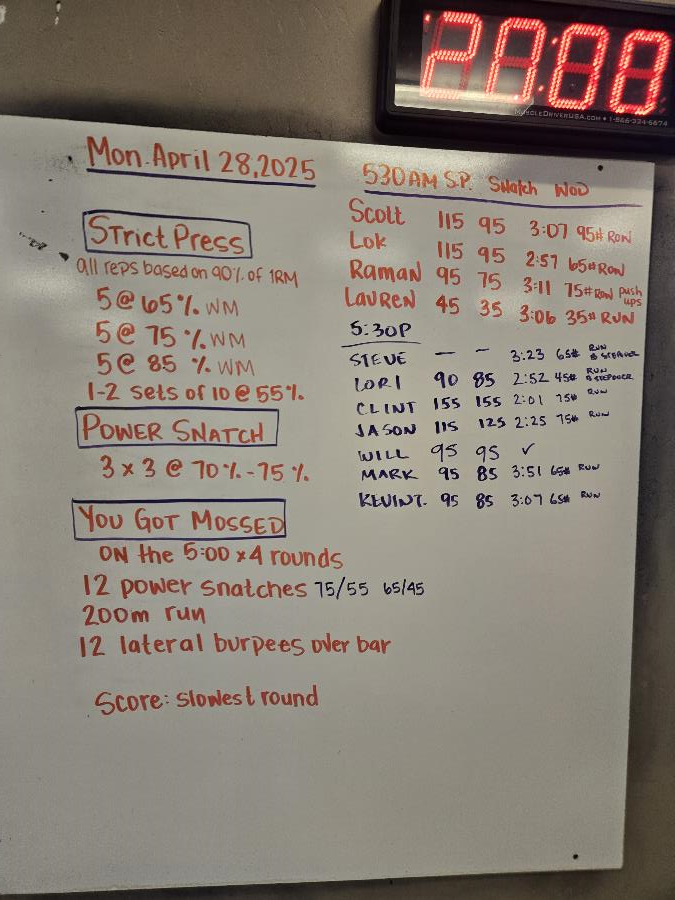 20:00
MUSCLEDRIVERUSA.COM • 1-866-224-6674
Mon. April 28, 2025
Strict Press
all reps based on 90% of 1RM
5 @ 65% WM
5 @ 75% WM
5 @ 85 % WM
1-2 sets of 10 @ 55%
Power Snatch
3 x 3 @ 70% - 75 %
You Got Mossed
ON the 5:00 x 4 rounds
12 power snatches 75/55 65/45
200m run
12 lateral burpees over bar
Score: slowest round
530AM S.P. Snatch WOD
Scott 115 95 3:07 95# Row
Lok 115 95 2:57 65# Row
Raman 95 75 3:11 75# Row push ups
Lauren 45 35 3:06 35# RUN
5:30P
STEVE — — 3:23 65# RUN
LORI 90 85 2:52 45# RUN
CLINT 155 155 2:01 75# RUN
JASON 115 125 2:25 75# RUN
WILL 95 95 ✓
MARK 95 85 3:51 65# RUN
KEVIN T. 95 85 3:07 65# RUN